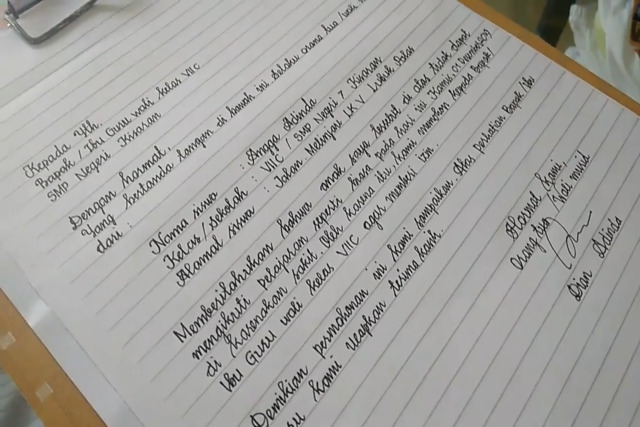 Kepada Yth.
Bapak / Ibu Guru wali kelas VIIC
SMP Negeri Kisaran
Dengan hormat,
Yang bertanda tangan di bawah ini selaku orang tua / wali
dari :
Nama siswa : Angga Adinda
Kelas / Sekolah : VIIC / SMP Negeri 7 Kisaran
Alamat siswa : Jalan Melinjau LK V Lubuk
Memberitahukan bahwa anak saya tersebut di atas tidak dapat
mengikuti pelajaran seperti biasa pada hari ini Kamis, 01
di karenakan sakit. Oleh karena itu kami memohon kepada Bapak /
Ibu Guru wali kelas VIIC agar memberi izin.
Demikian permohonan ini kami sampaikan. Atas perhatian Bapak / Ibu
kami ucapkan terimakasih.
Hormat kami,
Orang tua / wali murid
Dian Adinda